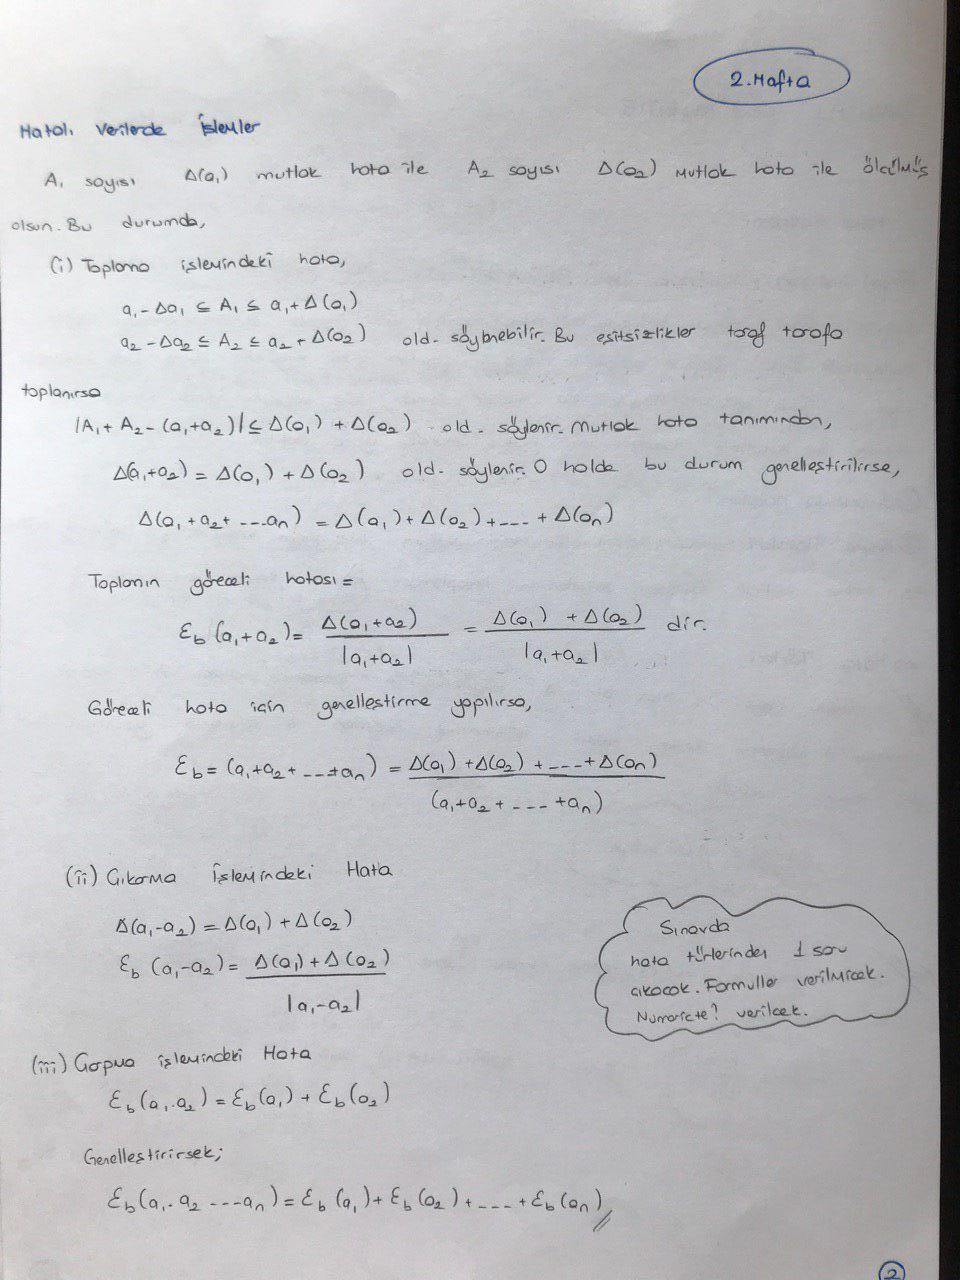 2.Hafta
Hatalı Verilerde İşlemler
A₁ sayısı Δ(a₁) mutlak hata ile A₂ sayısı Δ(a₂) mutlak hata ile ölçülmüş
olsun. Bu durumda,
(i) Toplama işlemindeki hata,
a₁ - Δa₁ ≤ A₁ ≤ a₁ + Δ(a₁)
a₂ - Δa₂ ≤ A₂ ≤ a₂ + Δ(a₂) old. söylenebilir. Bu eşitsizlikler taraf tarafa
toplanırsa
|A₁ + A₂ - (a₁+a₂)| ≤ Δ(a₁) + Δ(a₂) old. söylenir. Mutlak hata tanımından,
Δ(a₁+a₂) = Δ(a₁) + Δ(a₂) old. söylenir. O halde bu durum genelleştirilirse,
Δ(a₁ + a₂ + ---aₙ) = Δ(a₁) + Δ(a₂) +--- + Δ(aₙ)
Toplamın göreceli hatası =
Ɛb (a₁+a₂) = Δ(a₁+a₂) / |a₁+a₂| = Δ(a₁) + Δ(a₂) / |a₁+a₂| dir.
Göreceli hata için genelleştirme yapılırsa,
Ɛb = (a₁+a₂+ ---+aₙ) = Δ(a₁) + Δ(a₂) + ---+ Δ(aₙ) / (a₁+a₂ + --- +aₙ)
(ii) Çıkarma İşlemindeki Hata
Δ(a₁-a₂) = Δ(a₁) + Δ(a₂)
Ɛb (a₁-a₂) = Δ(a₁) + Δ(a₂) / |a₁-a₂|
Sınavda
hata türlerinden 1 soru
çıkacak. Formüller verilmicek.
? verilcek.
(iii) Çarpma işlemindeki Hata
Ɛb(a₁.a₂) = Ɛb(a₁) + Ɛb(a₂)
Genelleştirirsek;
Ɛb(a₁. a₂ ---aₙ) = Ɛb (a₁) + Ɛb (a₂) + --- + Ɛb (aₙ)//
2